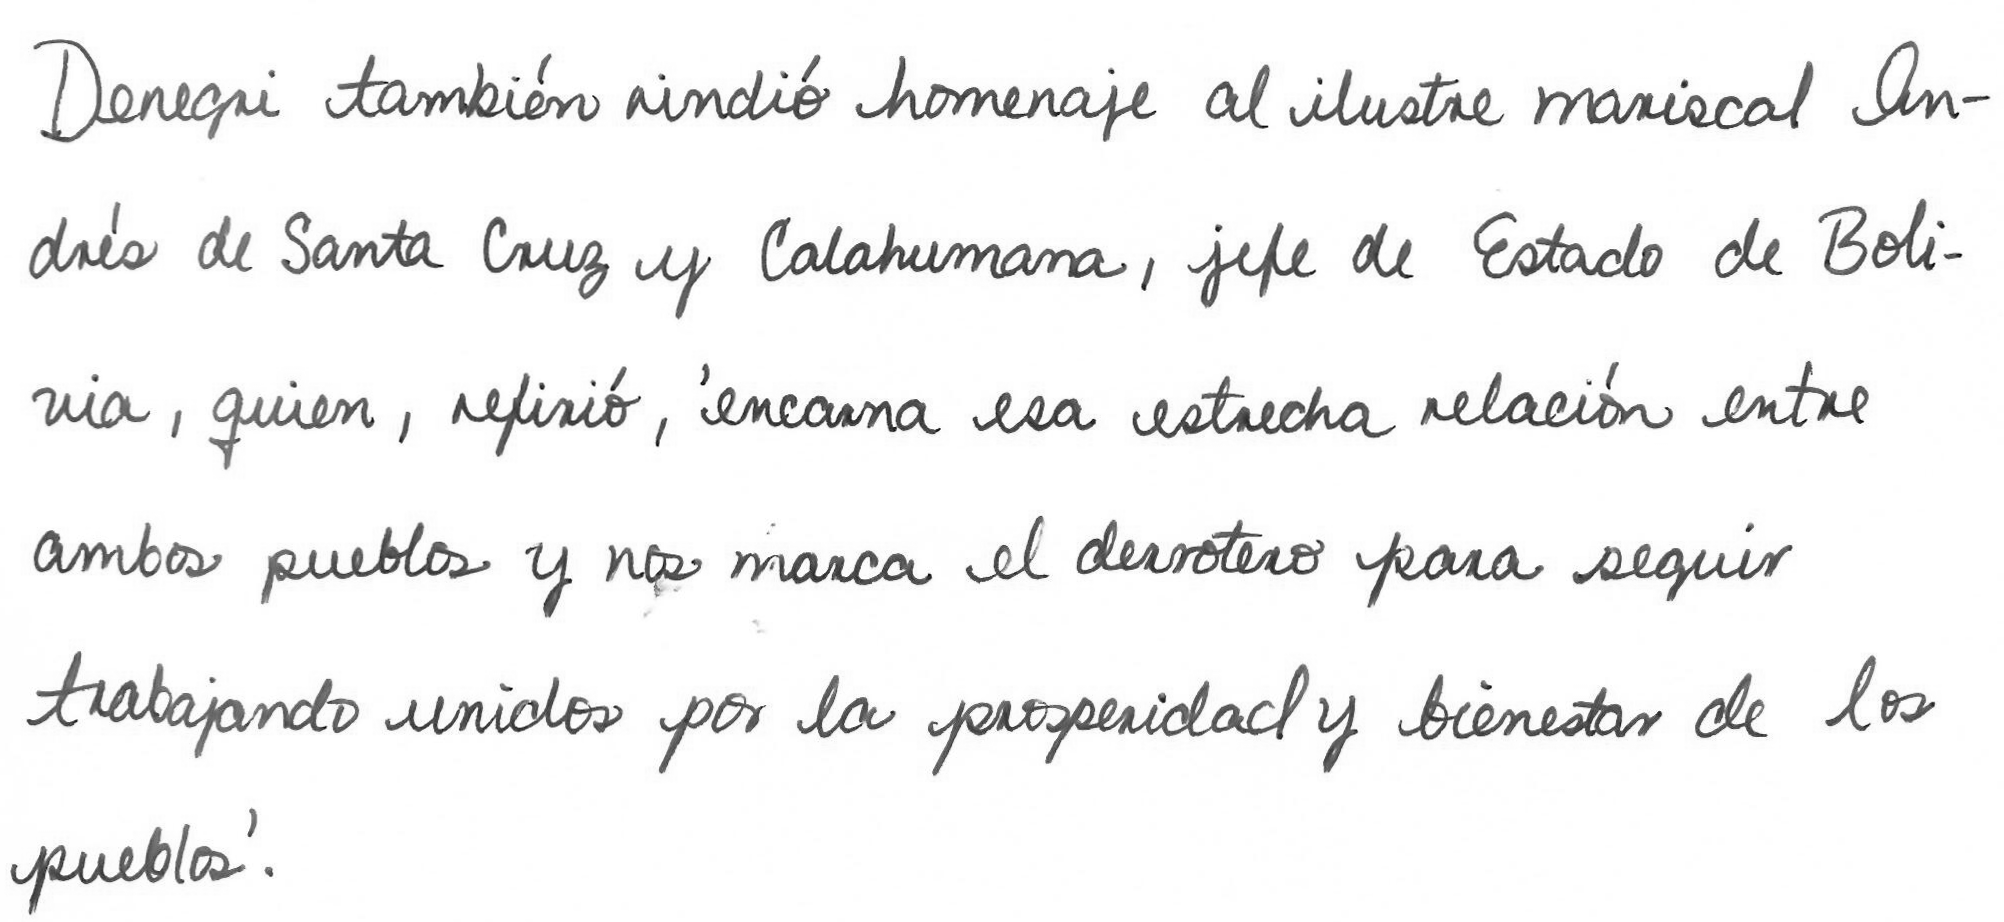 Denegri también rindió homenaje al ilustre mariscal An-
drés de Santa Cruz y Calahumana, jefe de Estado de Boli-
via, quien, refirió, 'encarna esa estrecha relación entre
ambos pueblos y nos marca el derrotero para seguir
trabajando unidos por la prosperidad y bienestar de los
pueblos'.